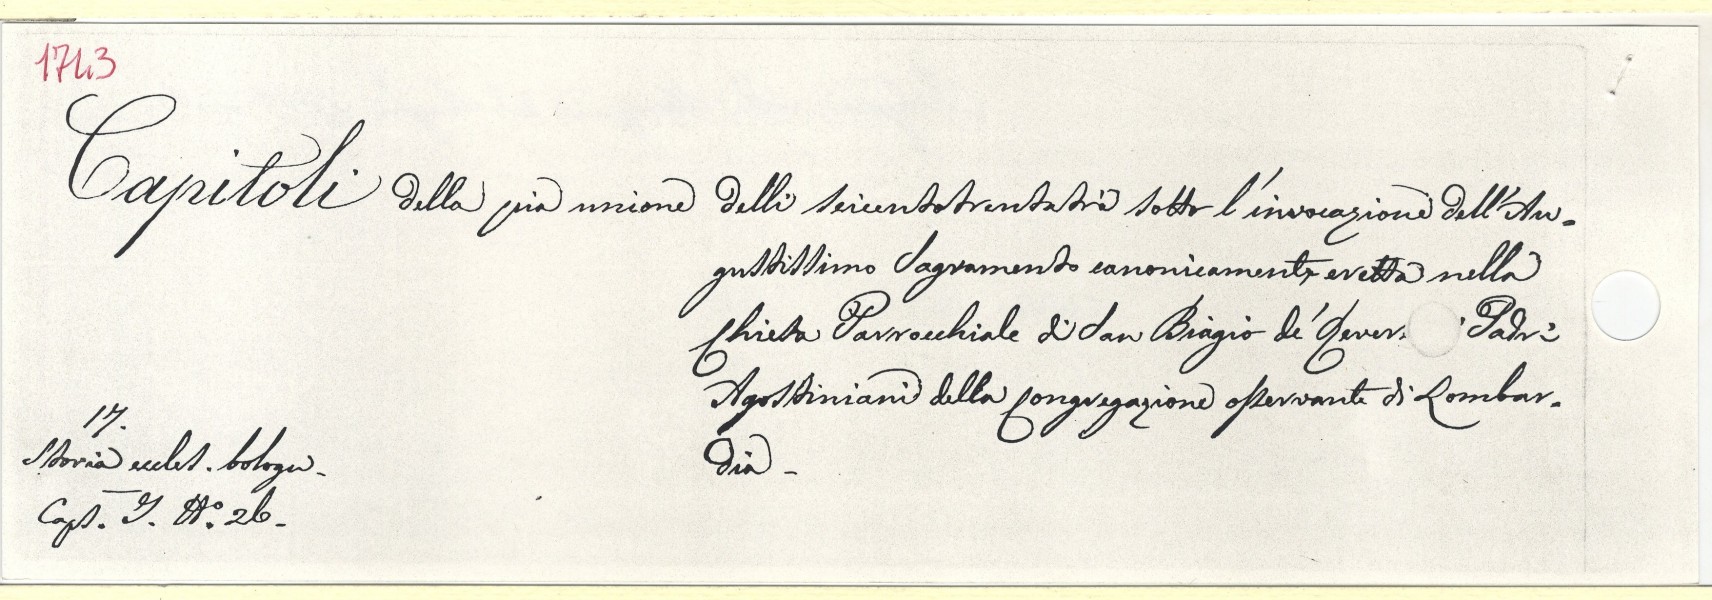 1743
Capitoli della pia unione delli seicentotrentatrè sotto l'invocazione dell'Au-
gustissimo Sagramento canonicamente eretta nella
Chiesa Parrocchiale di San Biagio de' Padri
Agostiniani della Congregazione osservante di Lombar-
dia -
17.
Storia eccles. bologn.
Caps. I. N.º 26.